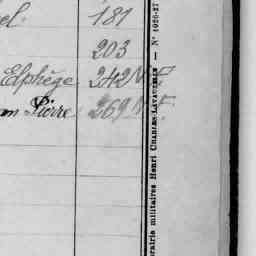 el. 181
203
Elphège 242 N.F.
Pierre 269 N.F.
rairie militaires Henri CHARLES-LAVAUZELLE — N° 1026-27